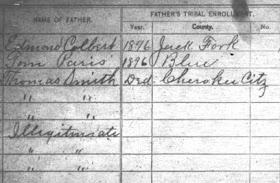 FATHER'S TRIBAL ENROLLMENT
NAME OF FATHER. Year. County.
Edmund Colbert 1896 Jack Fork
Tom Paris 1896 Blue
Thomas Smith Ded Cherokee Citz
" "
" "
Illegitimate
" "
" "